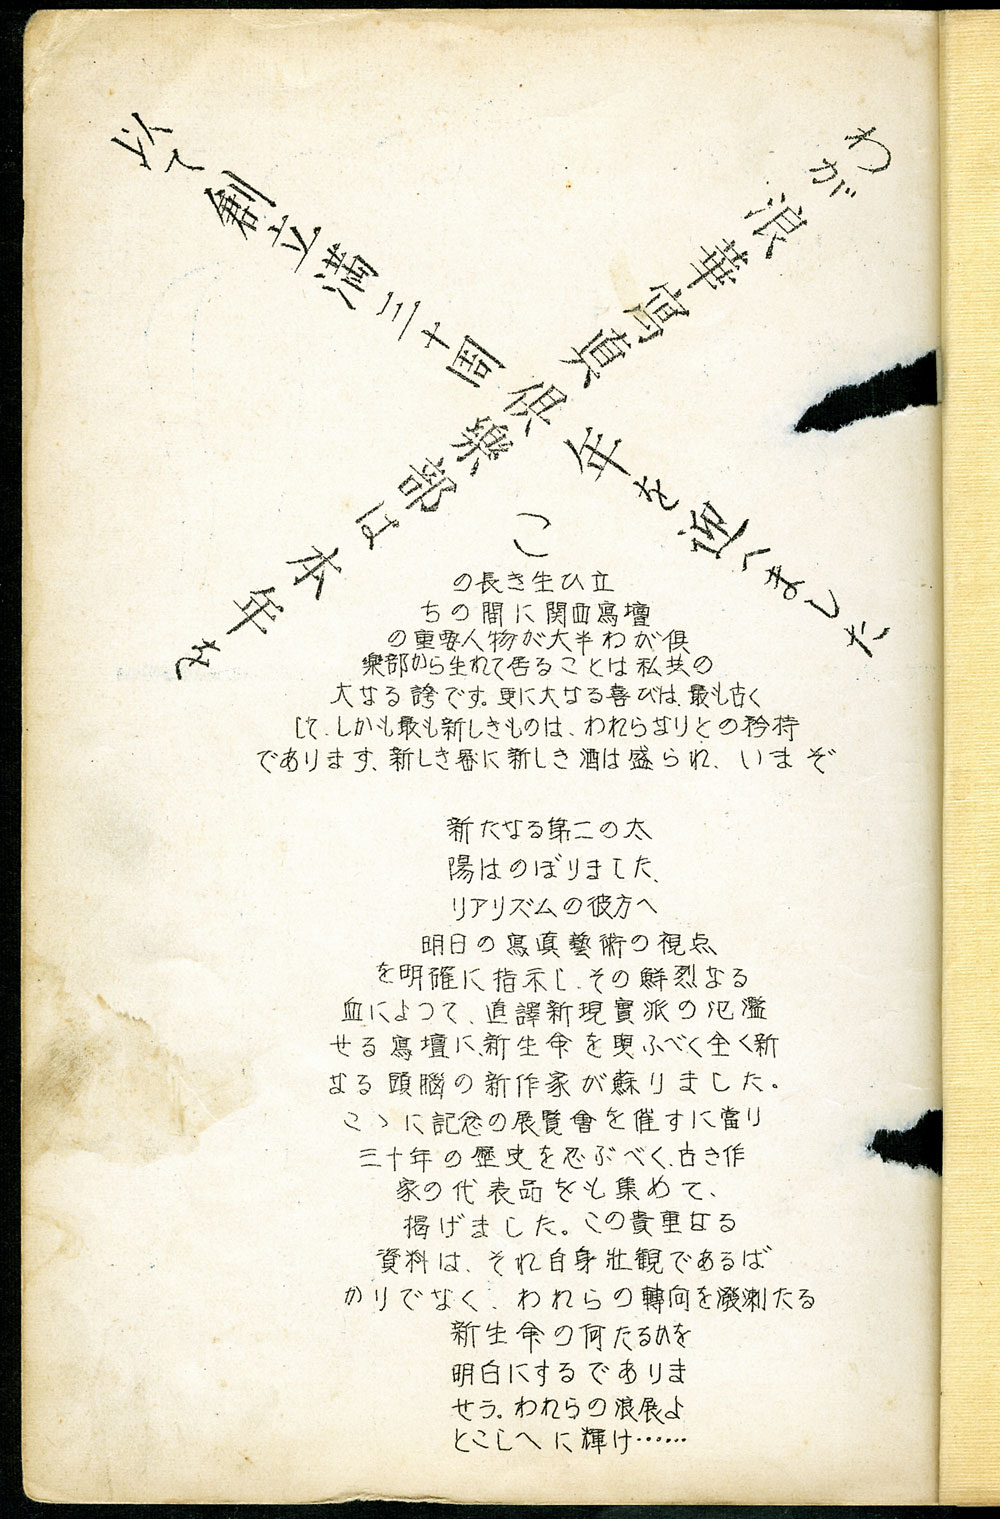 わが浪華寫眞倶樂部は本年を
以て創立満三十周年を迎へました
こ
の長き生ひ立
ちの間に関西寫壇
の重要人物が大半わが倶
樂部から生れて居ることは私共の
大なる誇です。更に大なる喜びは、最も古く
して、しかも最も新しきものは、われらなりとの矜持
であります、新しき器に新しき酒は盛られ、いまぞ
新たなる第二の太
陽はのぼりました、
リアリズムの彼方へ
明日の寫眞藝術の視点
を明確に指示し、その鮮烈なる
血によつて、直譯新現實派の氾濫
せる寫壇に、新生命を與ふべく全く新
なる頭腦の新作家が蘇りました。
こゝに記念の展覧會を催すに當り
三十年の歴史を忍ぶべく、古き作
家の代表品をも集めて、
掲げました。この貴重なる
資料は、それ自身壯観であるば
かりでなく、われらの轉向を溌溂たる
新生命の何たるかを
明白にするでありま
せう。われらの浪展よ
とこしへに輝け……